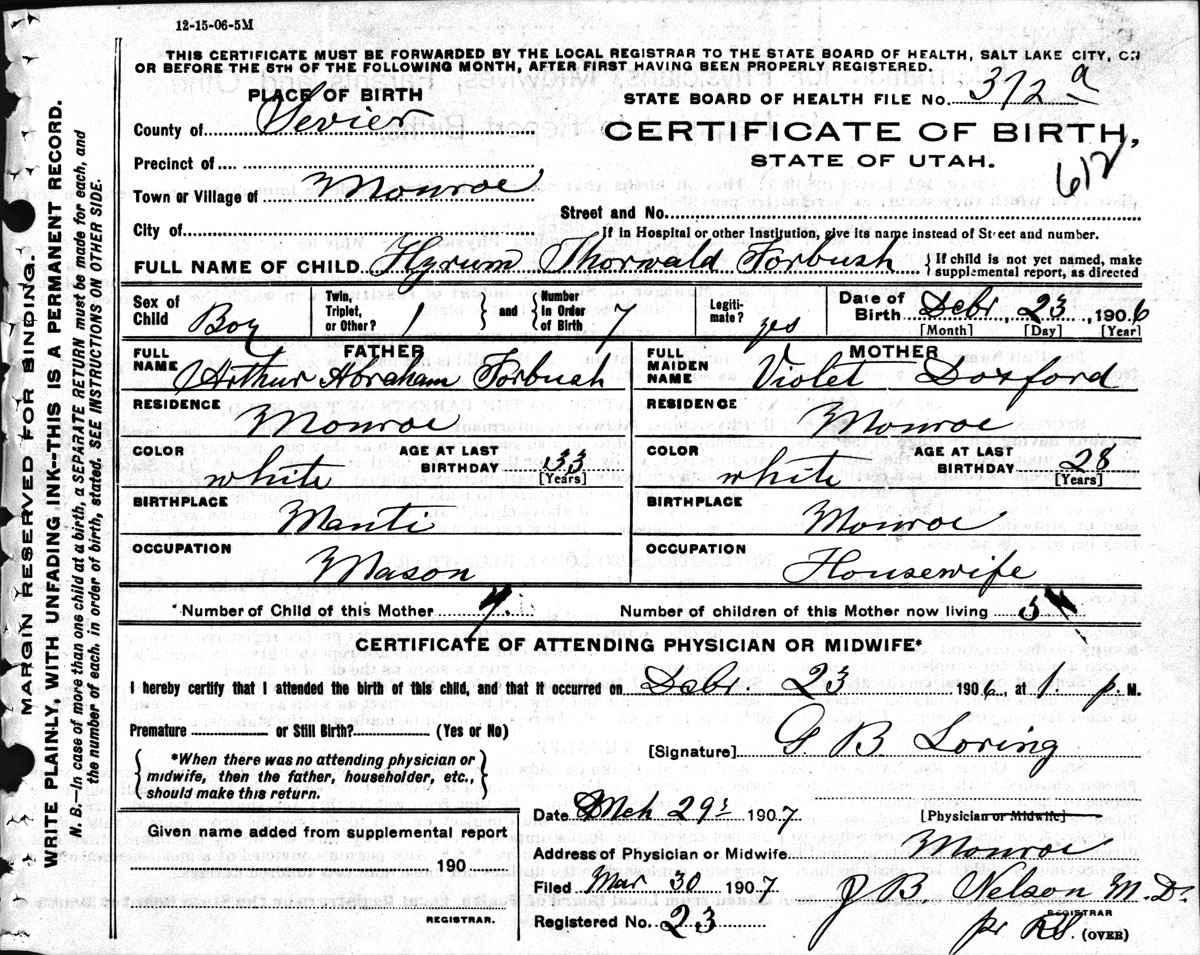 12-15-06-5M
THIS CERTIFICATE MUST BE FORWARDED BY THE LOCAL REGISTRAR TO THE STATE BOARD OF HEALTH, SALT LAKE CITY, ON
OR BEFORE THE 5TH OF THE FOLLOWING MONTH, AFTER FIRST HAVING BEEN PROPERLY REGISTERED.
PLACE OF BIRTH
County of Sevier
Precinct of
Town or Village of Monroe
City of
STATE BOARD OF HEALTH FILE No. 372 a
CERTIFICATE OF BIRTH,
STATE OF UTAH.
612
Street and No.
If in Hospital or other Institution, give its name instead of Street and number.
FULL NAME OF CHILD Hyrum Thorwald Forbush { If child is not yet named, make supplemental report, as directed
Sex of Child Boy Twin, Triplet, or Other? 1 } and { Number in Order of Birth 7 Legiti-mate? yes Date of Birth Debr. 23, 1906
[Month] [Day] [Year]
FATHER
FULL NAME Arthur Abraham Forbush
RESIDENCE Monroe
COLOR white AGE AT LAST BIRTHDAY 33
[Years]
BIRTHPLACE Manti
OCCUPATION Mason
MOTHER
FULL MAIDEN NAME Violet Doxford
RESIDENCE Monroe
COLOR white AGE AT LAST BIRTHDAY 28
[Years]
BIRTHPLACE Monroe
OCCUPATION Housewife
*Number of Child of this Mother 7. Number of children of this Mother now living 5
CERTIFICATE OF ATTENDING PHYSICIAN OR MIDWIFE*
I hereby certify that I attended the birth of this child, and that it occurred on Debr. 23 1906, at 1. p. M.
Premature or Still Birth? (Yes or No)
{ *When there was no attending physician or midwife, then the father, householder, etc., should make this return. }
[Signature] G B Loring
[Physician or Midwife]
Given name added from supplemental report
190
REGISTRAR.
Date Mch 29 1907
Address of Physician or Midwife Monroe
Filed Mar 30 1907
Registered No. 23
J B Nelson M.D.
REGISTRAR
pr
(OVER)
MARGIN RESERVED FOR BINDING.
WRITE PLAINLY, WITH UNFADING INK--THIS IS A PERMANENT RECORD.
N. B.—In case of more than one child at a birth, a SEPARATE RETURN must be made for each, and
the number of each, in order of birth, stated. SEE INSTRUCTIONS ON OTHER SIDE.